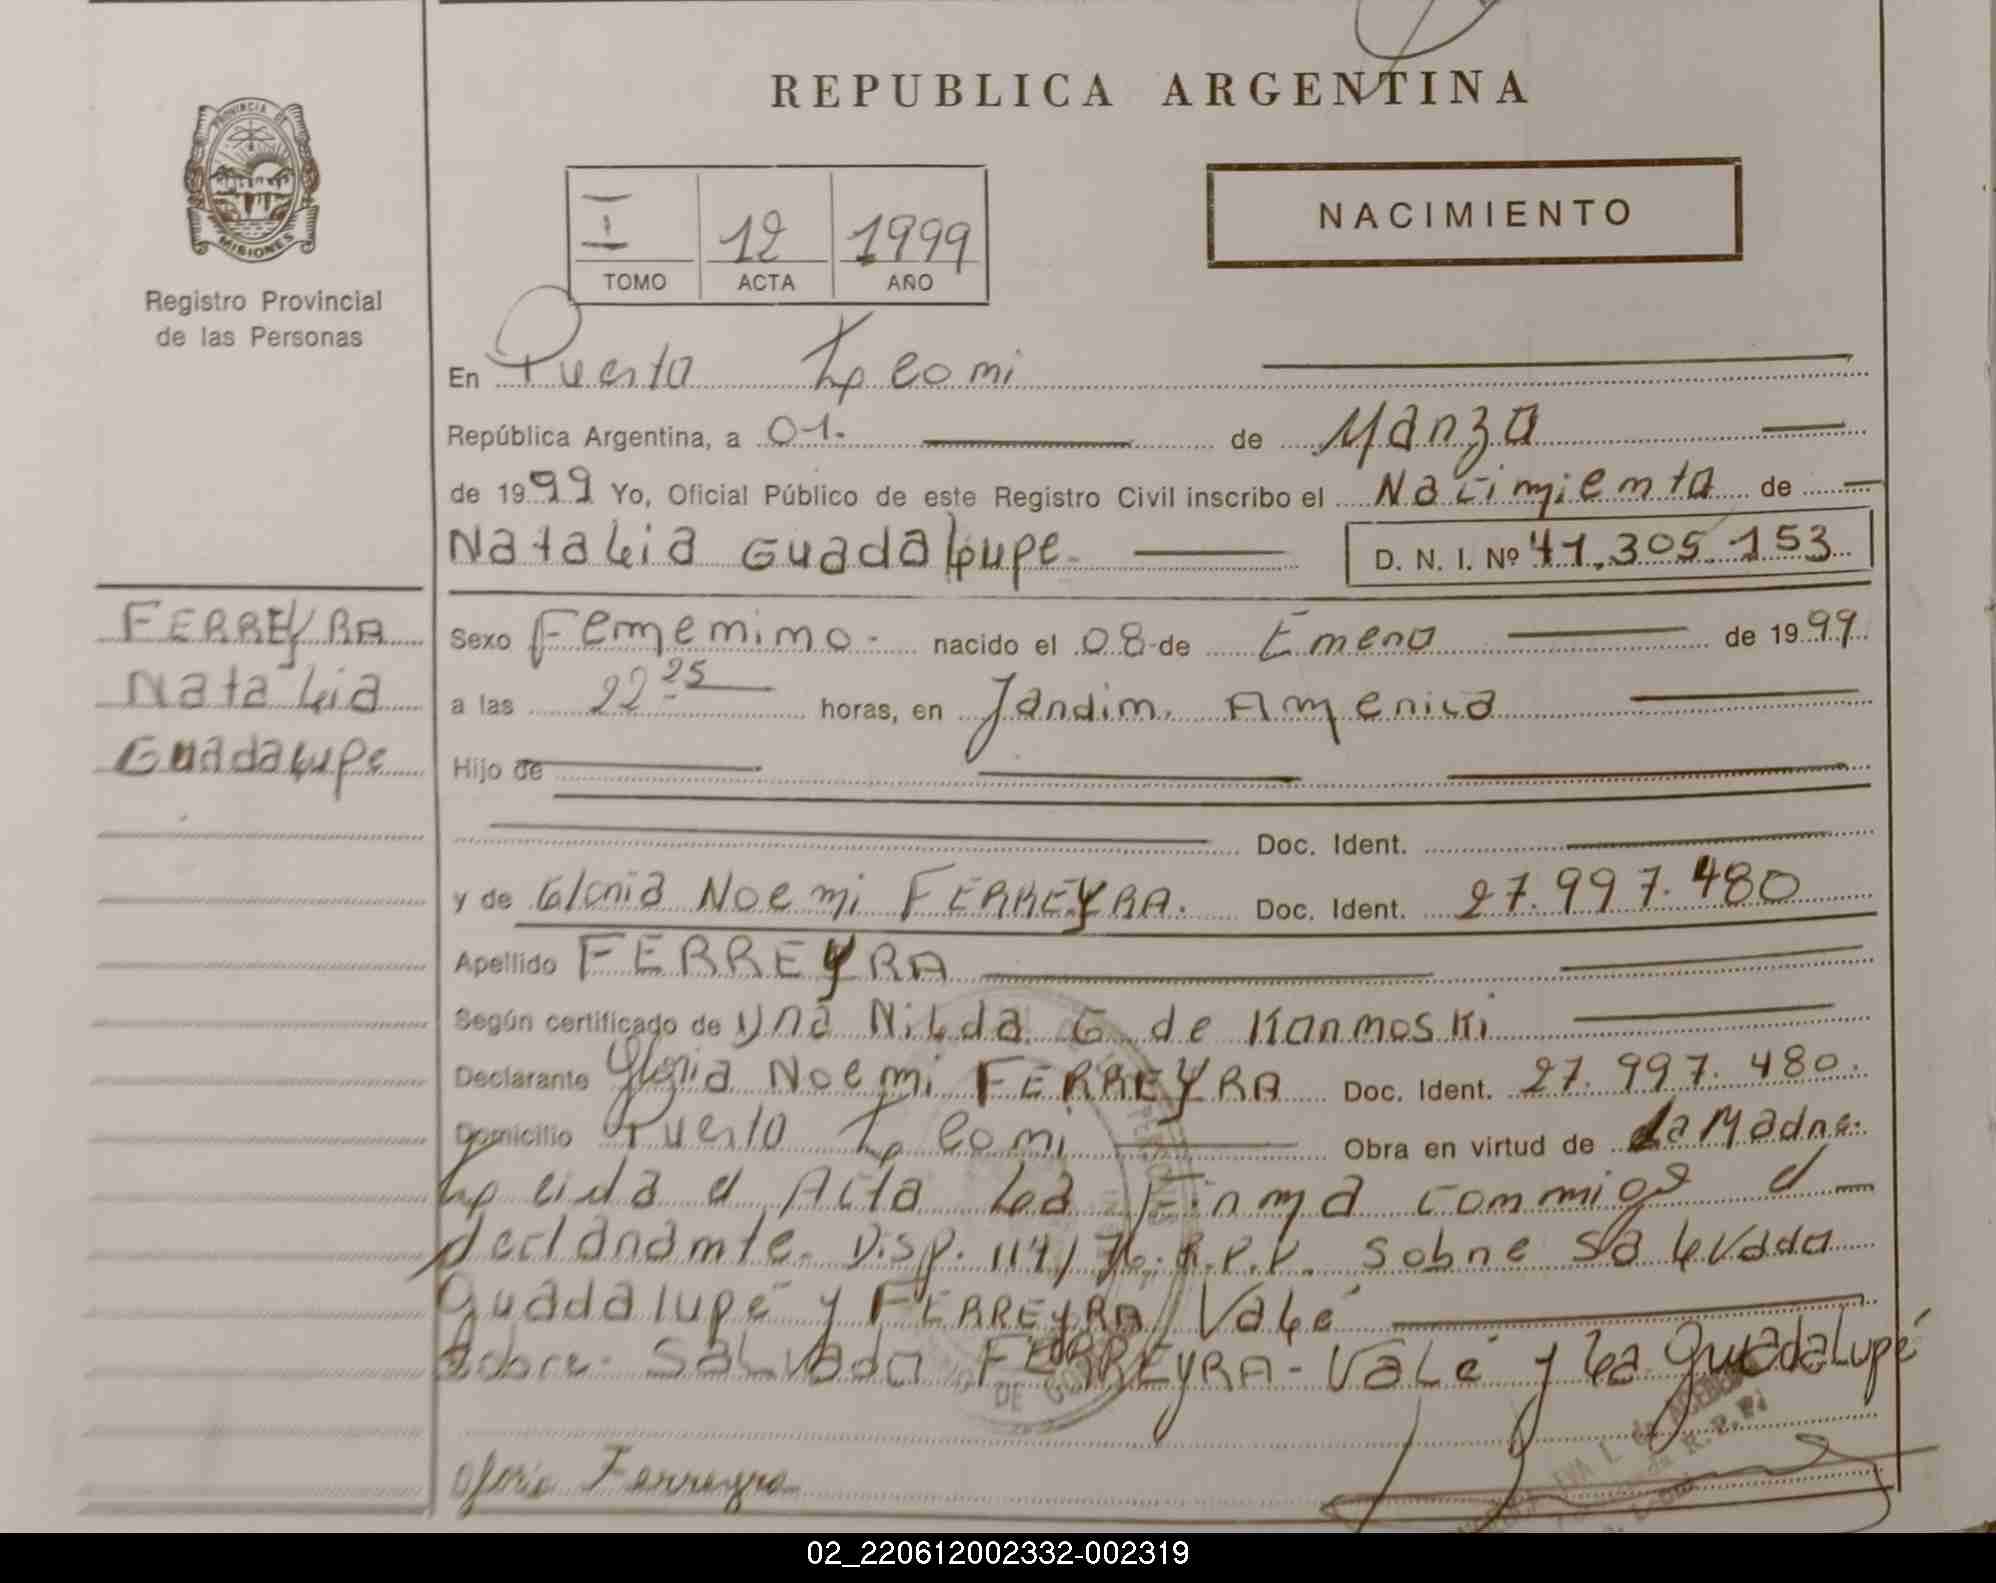 REPUBLICA ARGENTINA
PROVINCIA DE
MISIONES
Registro Provincial
de las Personas
I 12 1999
TOMO ACTA AÑO
NACIMIENTO
En Puerto Leoni
República Argentina, a 01. de Marzo
de 1999 Yo, Oficial Público de este Registro Civil inscribo el Nacimiento de
Natalia Guadalupe. D. N. I. Nº 41.305.153
FERREYRA
Natalia
Guadalupe
Sexo Femenino. nacido el 08 de Enero de 1999
a las 22 25 horas, en Jardin America
Hijo de
Doc. Ident.
y de Gloria Noemi FERREYRA. Doc. Ident. 27.997.480
Apellido FERREYRA
Según certificado de Dra Nilda G de
Declarante Gloria Noemi FERREYRA Doc. Ident. 27.997.480.
Domicilio Puerto Leoni Obra en virtud de La Madre.
Leida el Acta La Firma conmigo el
declarante. Disp. 117/76. R.P.P. Sobre Salvado
Guadalupe y FERREYRA Vale
Sobre. Salvado FERREYRA - Vale y la Guadalupe
Gloria Ferreyra
02_220612002332-002319